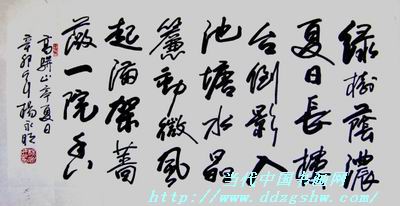 绿樹蔭濃
夏日長樓
台倒影入
池塘水晶
簾動微風
起滿架薔
薇一院香
高駢山亭夏日
辛卯年楊永
当代中国书画网
www.ddzgshw.com